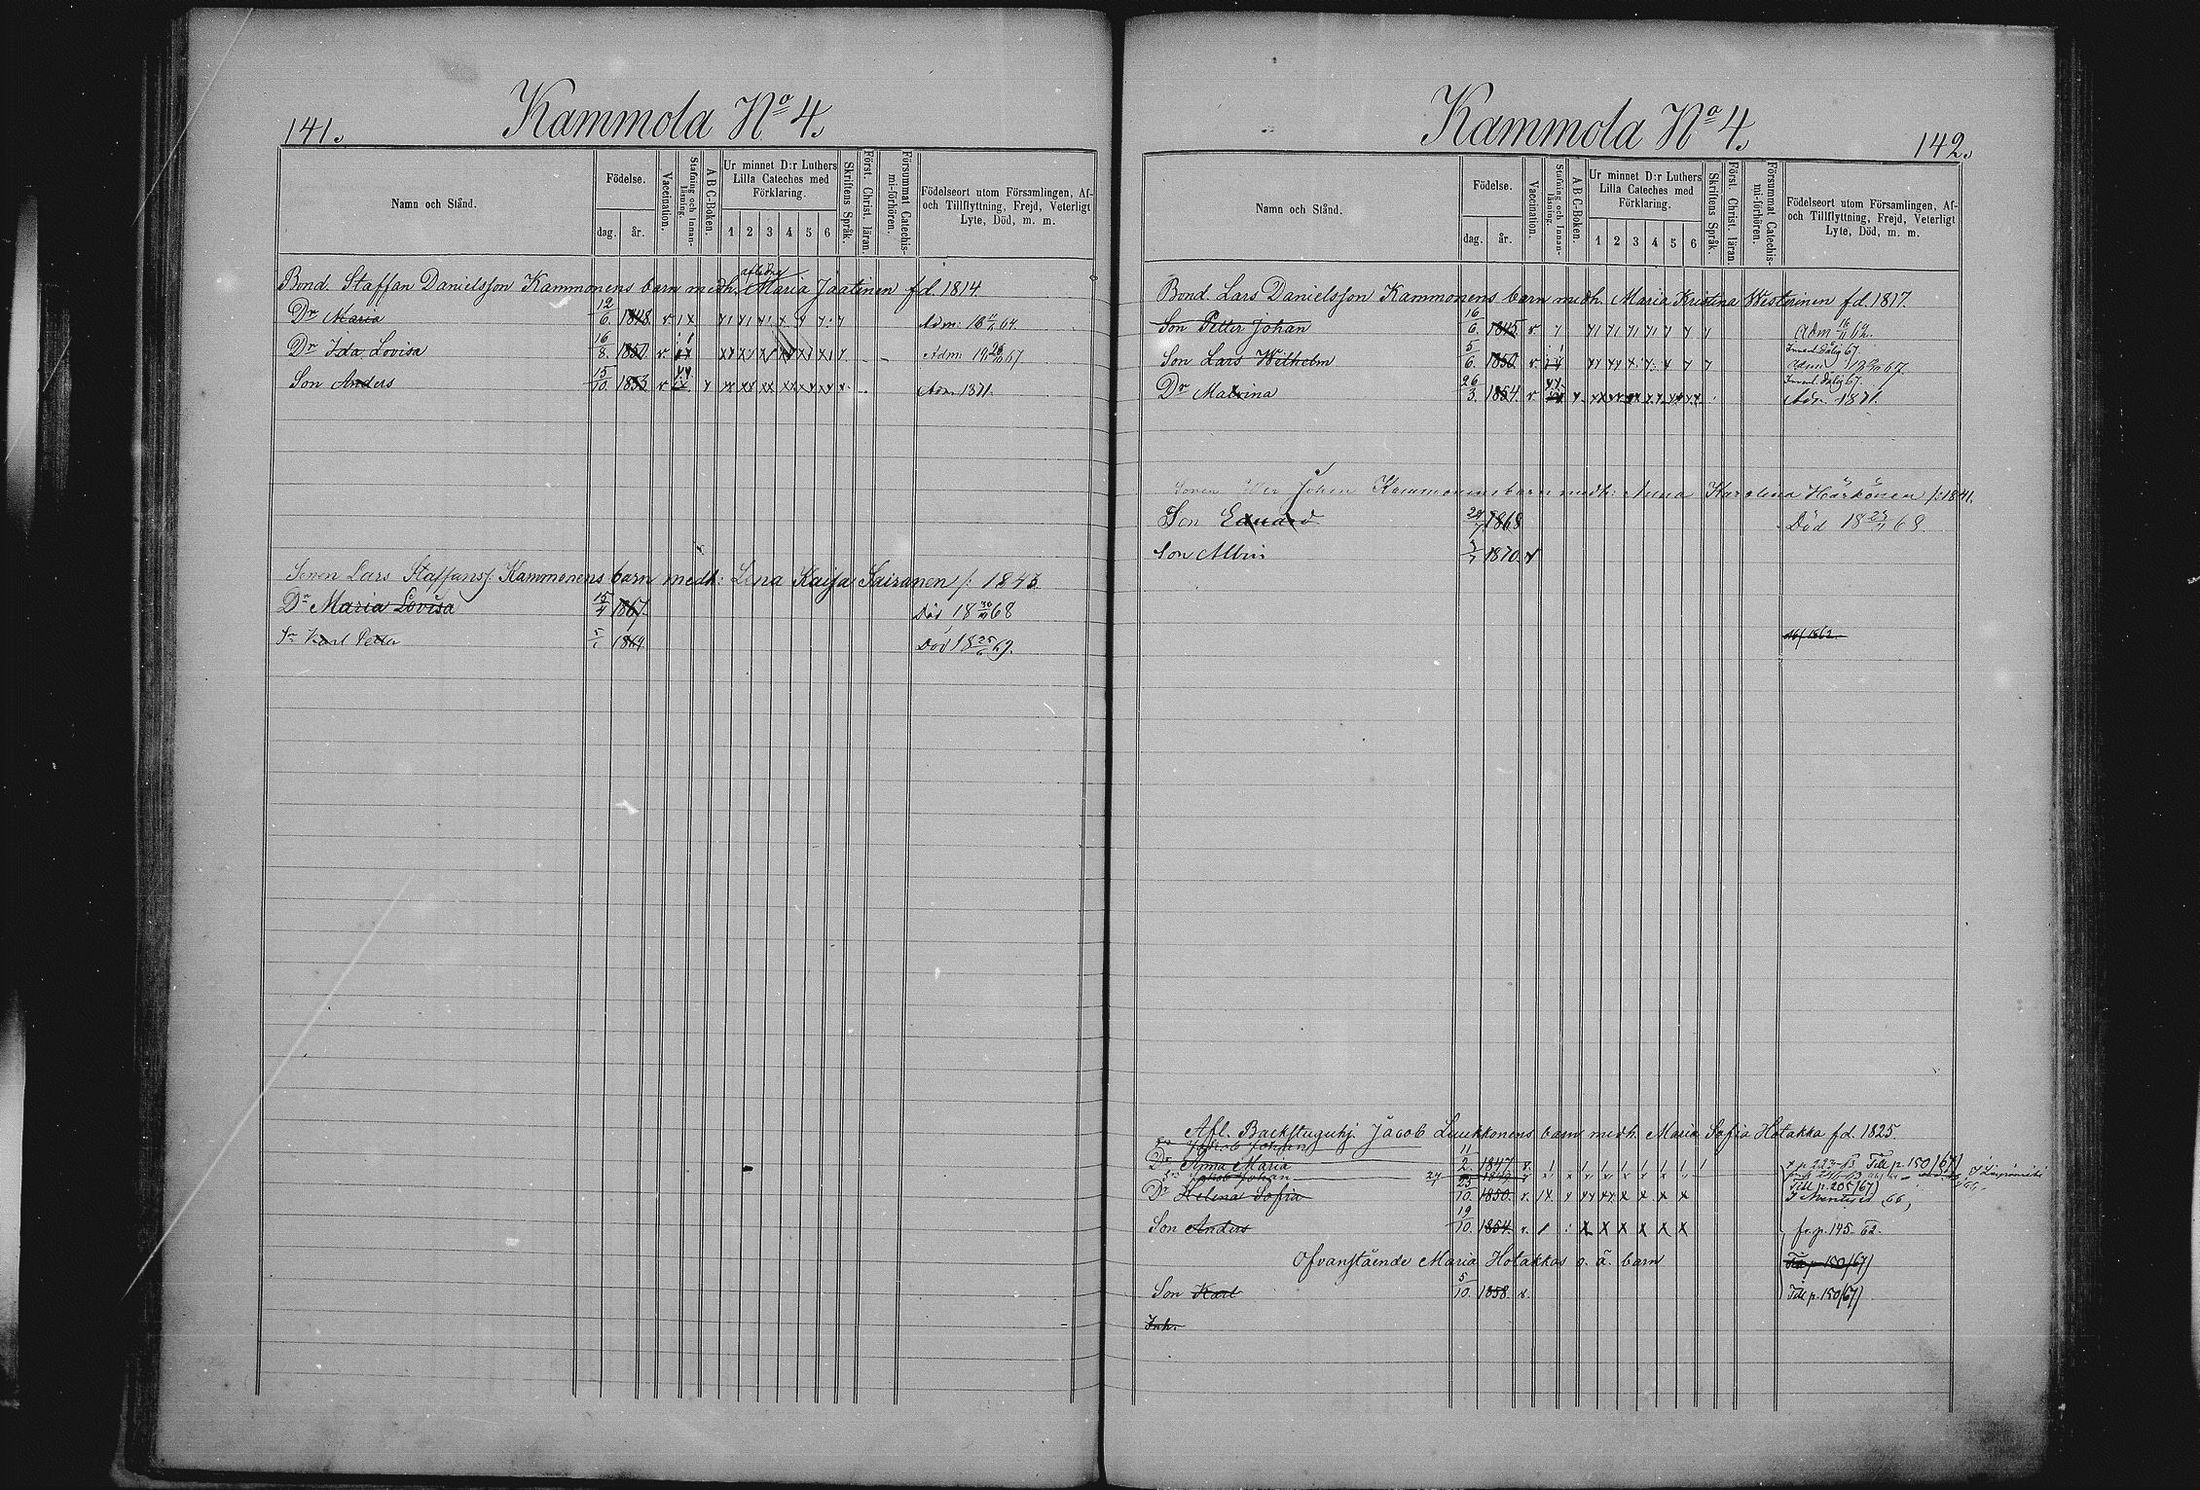 141.
Kammola No 4.
Namn och Stånd.
Födelse.
dag.
år.
Vaccination.
Stafning och Innanläsning.
A B C-Boken.
Ur minnet D:r Luthers Lilla Cateches med Förklaring.
1 2 3 4 5 6
Skriftens Språk.
Först. Christ. läran.
Försummat Catechismi-förhören.
Födelseort utom Församlingen, Af- och Tillflyttning, Frejd, Veterligt Lyte, Död, m. m.
aflidne
Bond. Staffan Danielsson Kammonens barn medh. Maria Jaatinen fd. 1814.
Dr Maria 12/6. 1848. v
Dr Ida Lovisa 16/8. 1850. v
Son Anders 15/10. 1853 v Adm. 1871.
Sonen Lars Staffanss. Kammonens barn medh: Lena Kaisa Sairanen f: 1843
Dr Maria Lovisa 15/4 1867. Död 18 68
Sn Karl Petter 1869. Död 18 25/6 69.
Kammola No 4.
142.
Namn och Stånd.
Födelse.
dag.
år.
Vaccination.
Stafning och Innanläsning.
A B C-Boken.
Ur minnet D:r Luthers Lilla Cateches med Förklaring.
1 2 3 4 5 6
Skriftens Språk.
Först. Christ. läran.
Försummat Catechismi-förhören.
Födelseort utom Församlingen, Af- och Tillflyttning, Frejd, Veterligt Lyte, Död, m. m.
Bond. Lars Danielsson Kammonens barn medh. Maria Kristina Westerinen fd. 1817.
Son Petter Johan 16/6. 1845 v
Son Lars Wilhelm 5/6. 1850 v
Dr Malvina 26/3. 1854. v Adm 1871.
Johan Kammonens barn medh: Anna Karolina Härkönen f: 1841.
Son Eduard 1868 Död 18 68
Son Albin 1870. v
Afl. Backstuguhj. Jacob Luukkonens barn medh. Maria Sofia Hotakka fd. 1825.
Jakob Johan
Dr Anna Maria 11/2. 1847. v. Till p. 150/67)
Jakob Johan 1849
Dr Helena Sofia 25/10. 1850. v. Till p. 205/67)
Son Anders 19/10. 1854. v. fr. p. 145. 62.
Ofvanstående Maria Hotakkas o. ä. barn Till p. 150/67)
Son Karl 5/10. 1858. v. Till p. 150/67)
Inh.